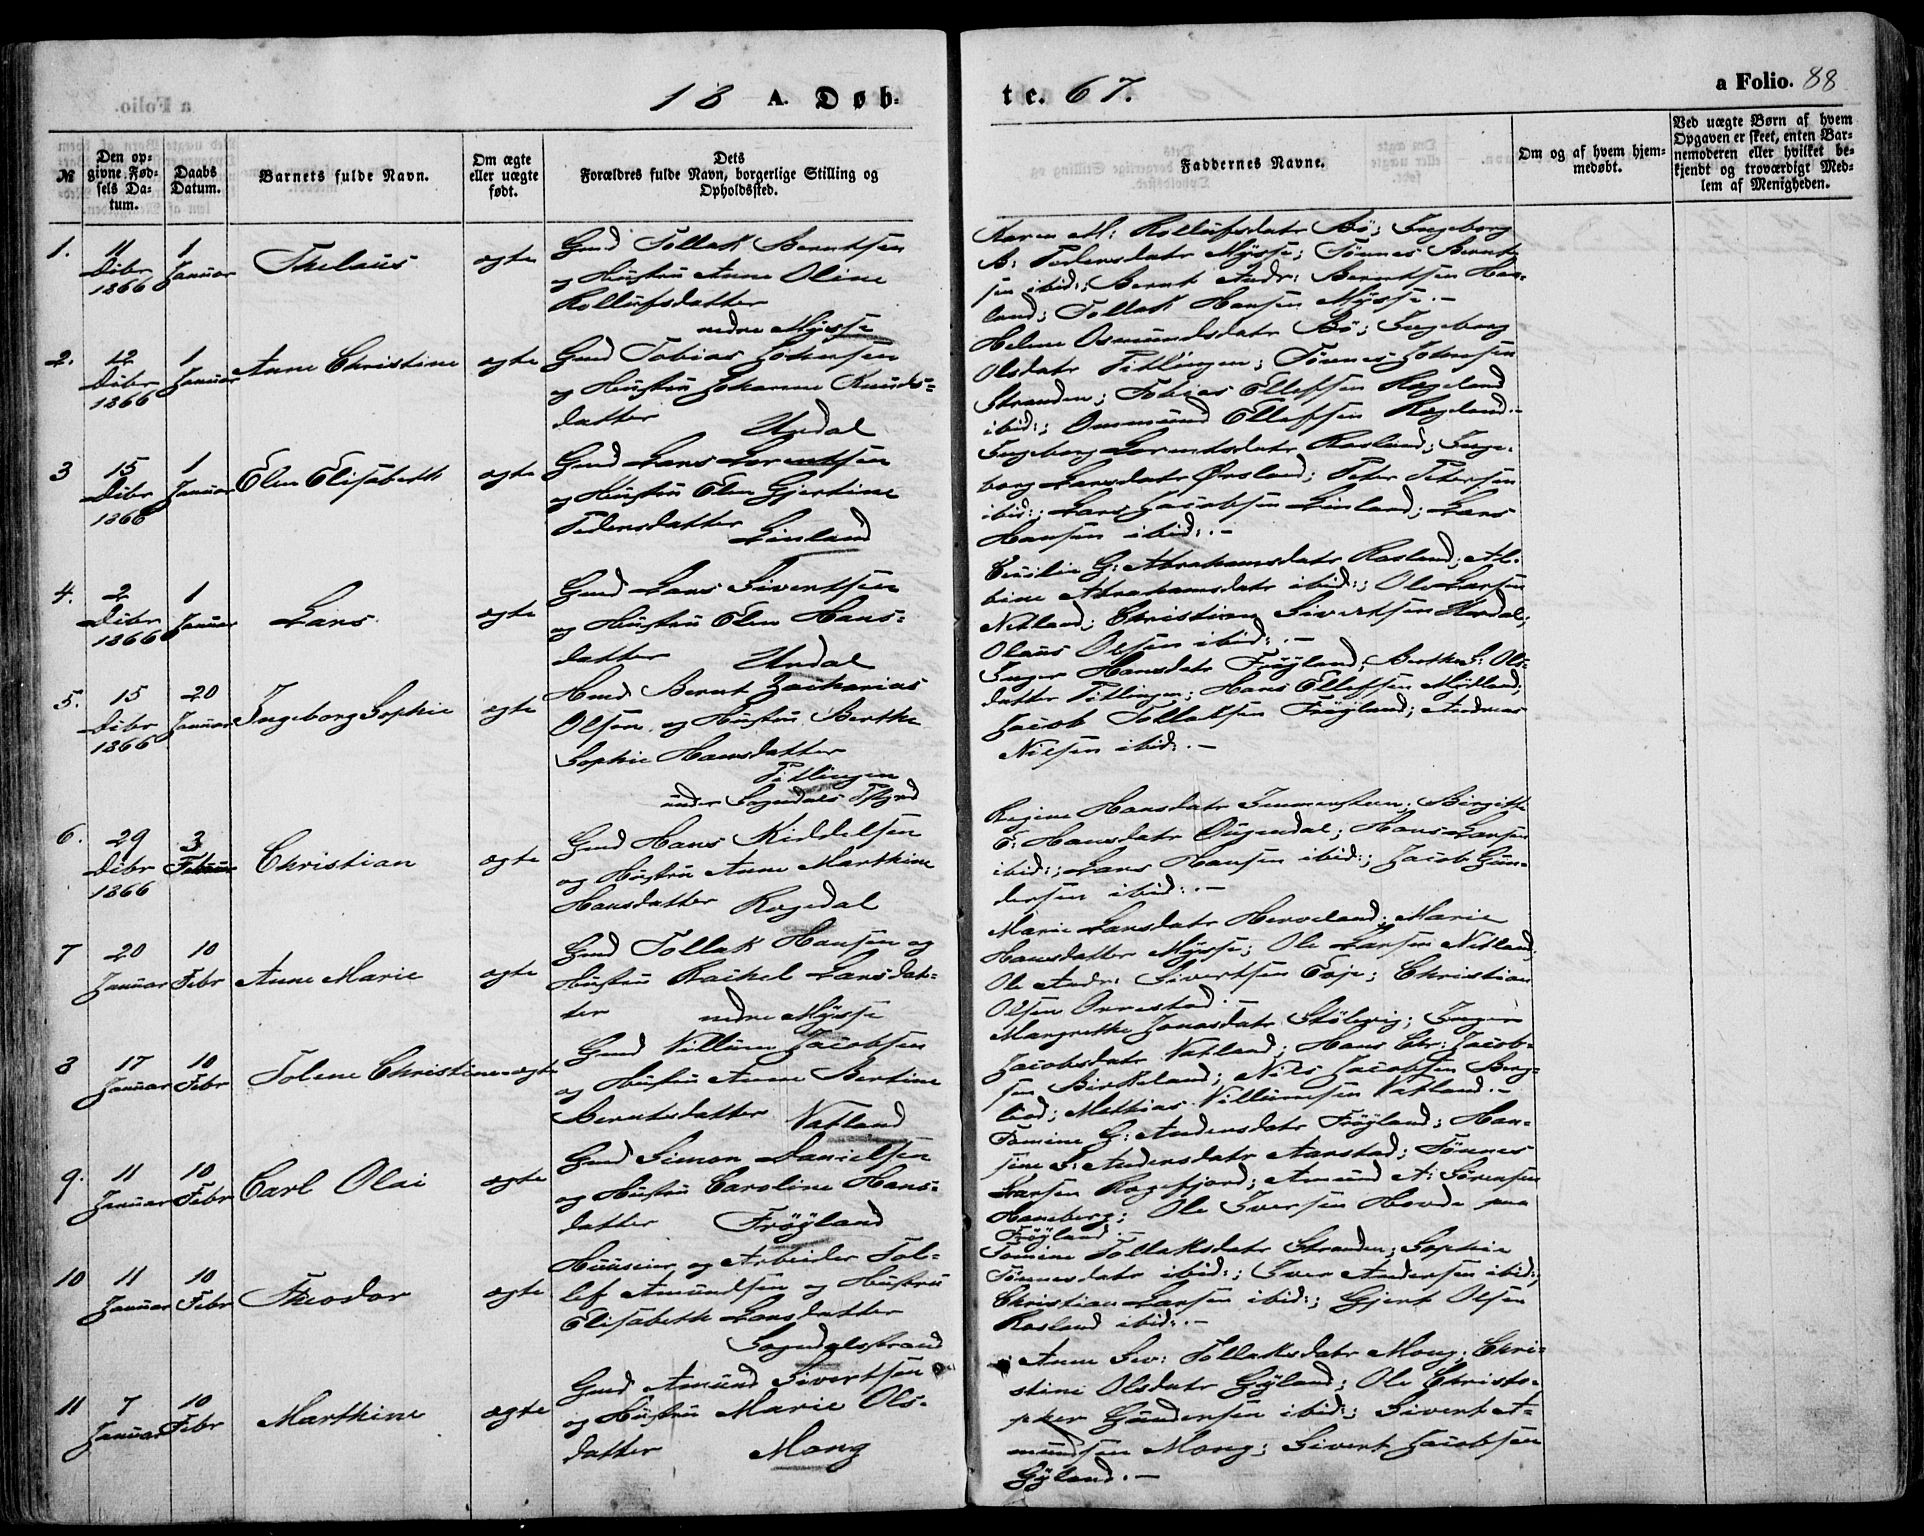 18 A. Døb-
te. 67.
a Folio. 88
№
Den op-
givne Fød-
sels Da-
tum.
Daabs
Datum.
Barnets fulde Navn.
Om ægte
eller uægte
født.
Dets
Forældres fulde Navn, borgerlige Stilling og
Opholdssted.
Faddernes Navne.
Om og af hvem hjem-
medøbt.
Ved uægte Børn af hvem
Opgaven er skeet, enten Bar-
nemoderen eller hvilket be-
kjendt og troværdigt Med-
lem af Menigheden.
1.
11
Dibr
1866
1
Januar
Thelaus
ægte
Gmd Tollak Berntsen
og Hustru Anne Oline
Rollufsdatter
nedre Mysse
Karen M: Rollufsdatr Bö; Ingeborg
B: Pedersdatr Mysse; Tönnes Bernt-
sen ibid:; Bernt Andr: Berntsen Hau-
land; Tollak Hansen Mysse.-
2.
12
Dibr
1866
1
Januar
Anne Christine
ægte
Gmd Tobias Johnsen
og Hustru Johanne Knuds-
datter
Urdal
Helene Osmundsdatr Bö; Ingeborg
Olsdatr Titlingen; Tönnes Johnsen
Stranden; Tobias Ellefsen Rægeland
ibid:; Ommund Ellefsen Rægeland.-
3
15
Dibr
1866
1
Januar
Elen Elisabeth
ægte
Gmd Lars Lorentsen
og Hustru Elen Gjertine
Pedersdatter
Linland
Ingeborg Lorentsdatr Rosland; Inge-
borg Larsdatr Örsland; Peter Petersen
ibid:; Lars Jacobsen Linland; Lars
Hansen ibid:.-
4.
2
Dibr
1866
1
Januar
Lars
ægte
Gmd Lars Sivertsen
og Hustru Elen Hans-
datter
Urdal
Cecilie G: Abrahamsdatr Rosland; Al-
bine Abrahamsdatr ibid:; Ole Larsen
Netland; Christian Sivertsen Urdal;
Olaus Olsen ibid:.-
5.
15
Dibr
1866
20
Januar
Ingeborg Sophie
ægte
Hmd Bernt Zacharias
Olsen og Hustru Berthe
Sophie Hansdatter
Titlingen
under Sogndals Pgjrd
Inger Hansdatr Fröyland; Berthe S: Ols-
datter Titlingen; Hans Ellefsen Mydland;
Jacob Tollaksen Fröyland; Andreas
Nilsen ibid:.-
6.
29
Dibr
1866
3
Februar
Christian
ægte
Gmd Hans Kiddelsen
og Hustru Anne Marthine
Hansdatter Rægedal
Regine Hansdatr Immerstein; Birgitte
E: Hansdatr Öugendal; Hans Larsen
ibid:; Lars Hansen ibid:; Jacob Gun-
dersen ibid:.-
7
20
Januar
10
Febr
Anne Marie
ægte
Gmd Tollak Hansen og
Hustru Rachel Larsdat-
ter
nedre Mysse
Marie Larsdatr Herveland; Marie
Hansdatter Mysse; Ole Larsen Netland;
Ole Andr: Sivertsen Eeje; Christian
Olsen Orrestad.-
8
17
Januar
10
Febr
Tolene Christine
ægte
Gmd Villum Jacobsen
og Hustru Anne Bertine
Berntsdatter
Vatland
Margrethe Jonasdatr Stölevig; Inger
Jacobsdatr Vatland; Hans Chr: Jacob-
sen Birkeland; Niels Jacobsen Berg-
lied; Mathias Villumsen Vatland.-
9.
11
Januar
10
Febr
Carl Olai
ægte
Gmd Simon Danielsen
og Hustru Caroline Hans-
datter
Fröyland
Tomine G: Andersdatr Fröyland; Han-
sine S: Andersdatr Aarstad; Tönnes
Larsen Rægefjord; Amund A: Sörensen
Haneberg; Ole Iversen Hovde paa
Fröyland.-
10
11
Januar
10
Febr
Theodor
ægte
Huusmr og Arbeider Tol-
lef Amundsen og Hustru
Elisabeth Larsdatter
Sogndalsstrand
Tomine Tollaksdatr Stranden; Sophie
Tönnesdatr ibid:; Iver Andersen ibid:;
Christian Larsen ibid:; Gjert Olsen
Rosland ibid:.-
11
7
Januar
10
Febr
Marthine
ægte
Gmd Amund Sivertsen
og Hustru Marie Ols-
datter
Mong
Anne Sev: Tollaksdatr Mong; Chri-
stine Olsdatr Gyland; Ole Christo-
pher Gundersen ibid:; Sivert A-
mundsen Mong; Sivert Jacobsen
Gyland.-